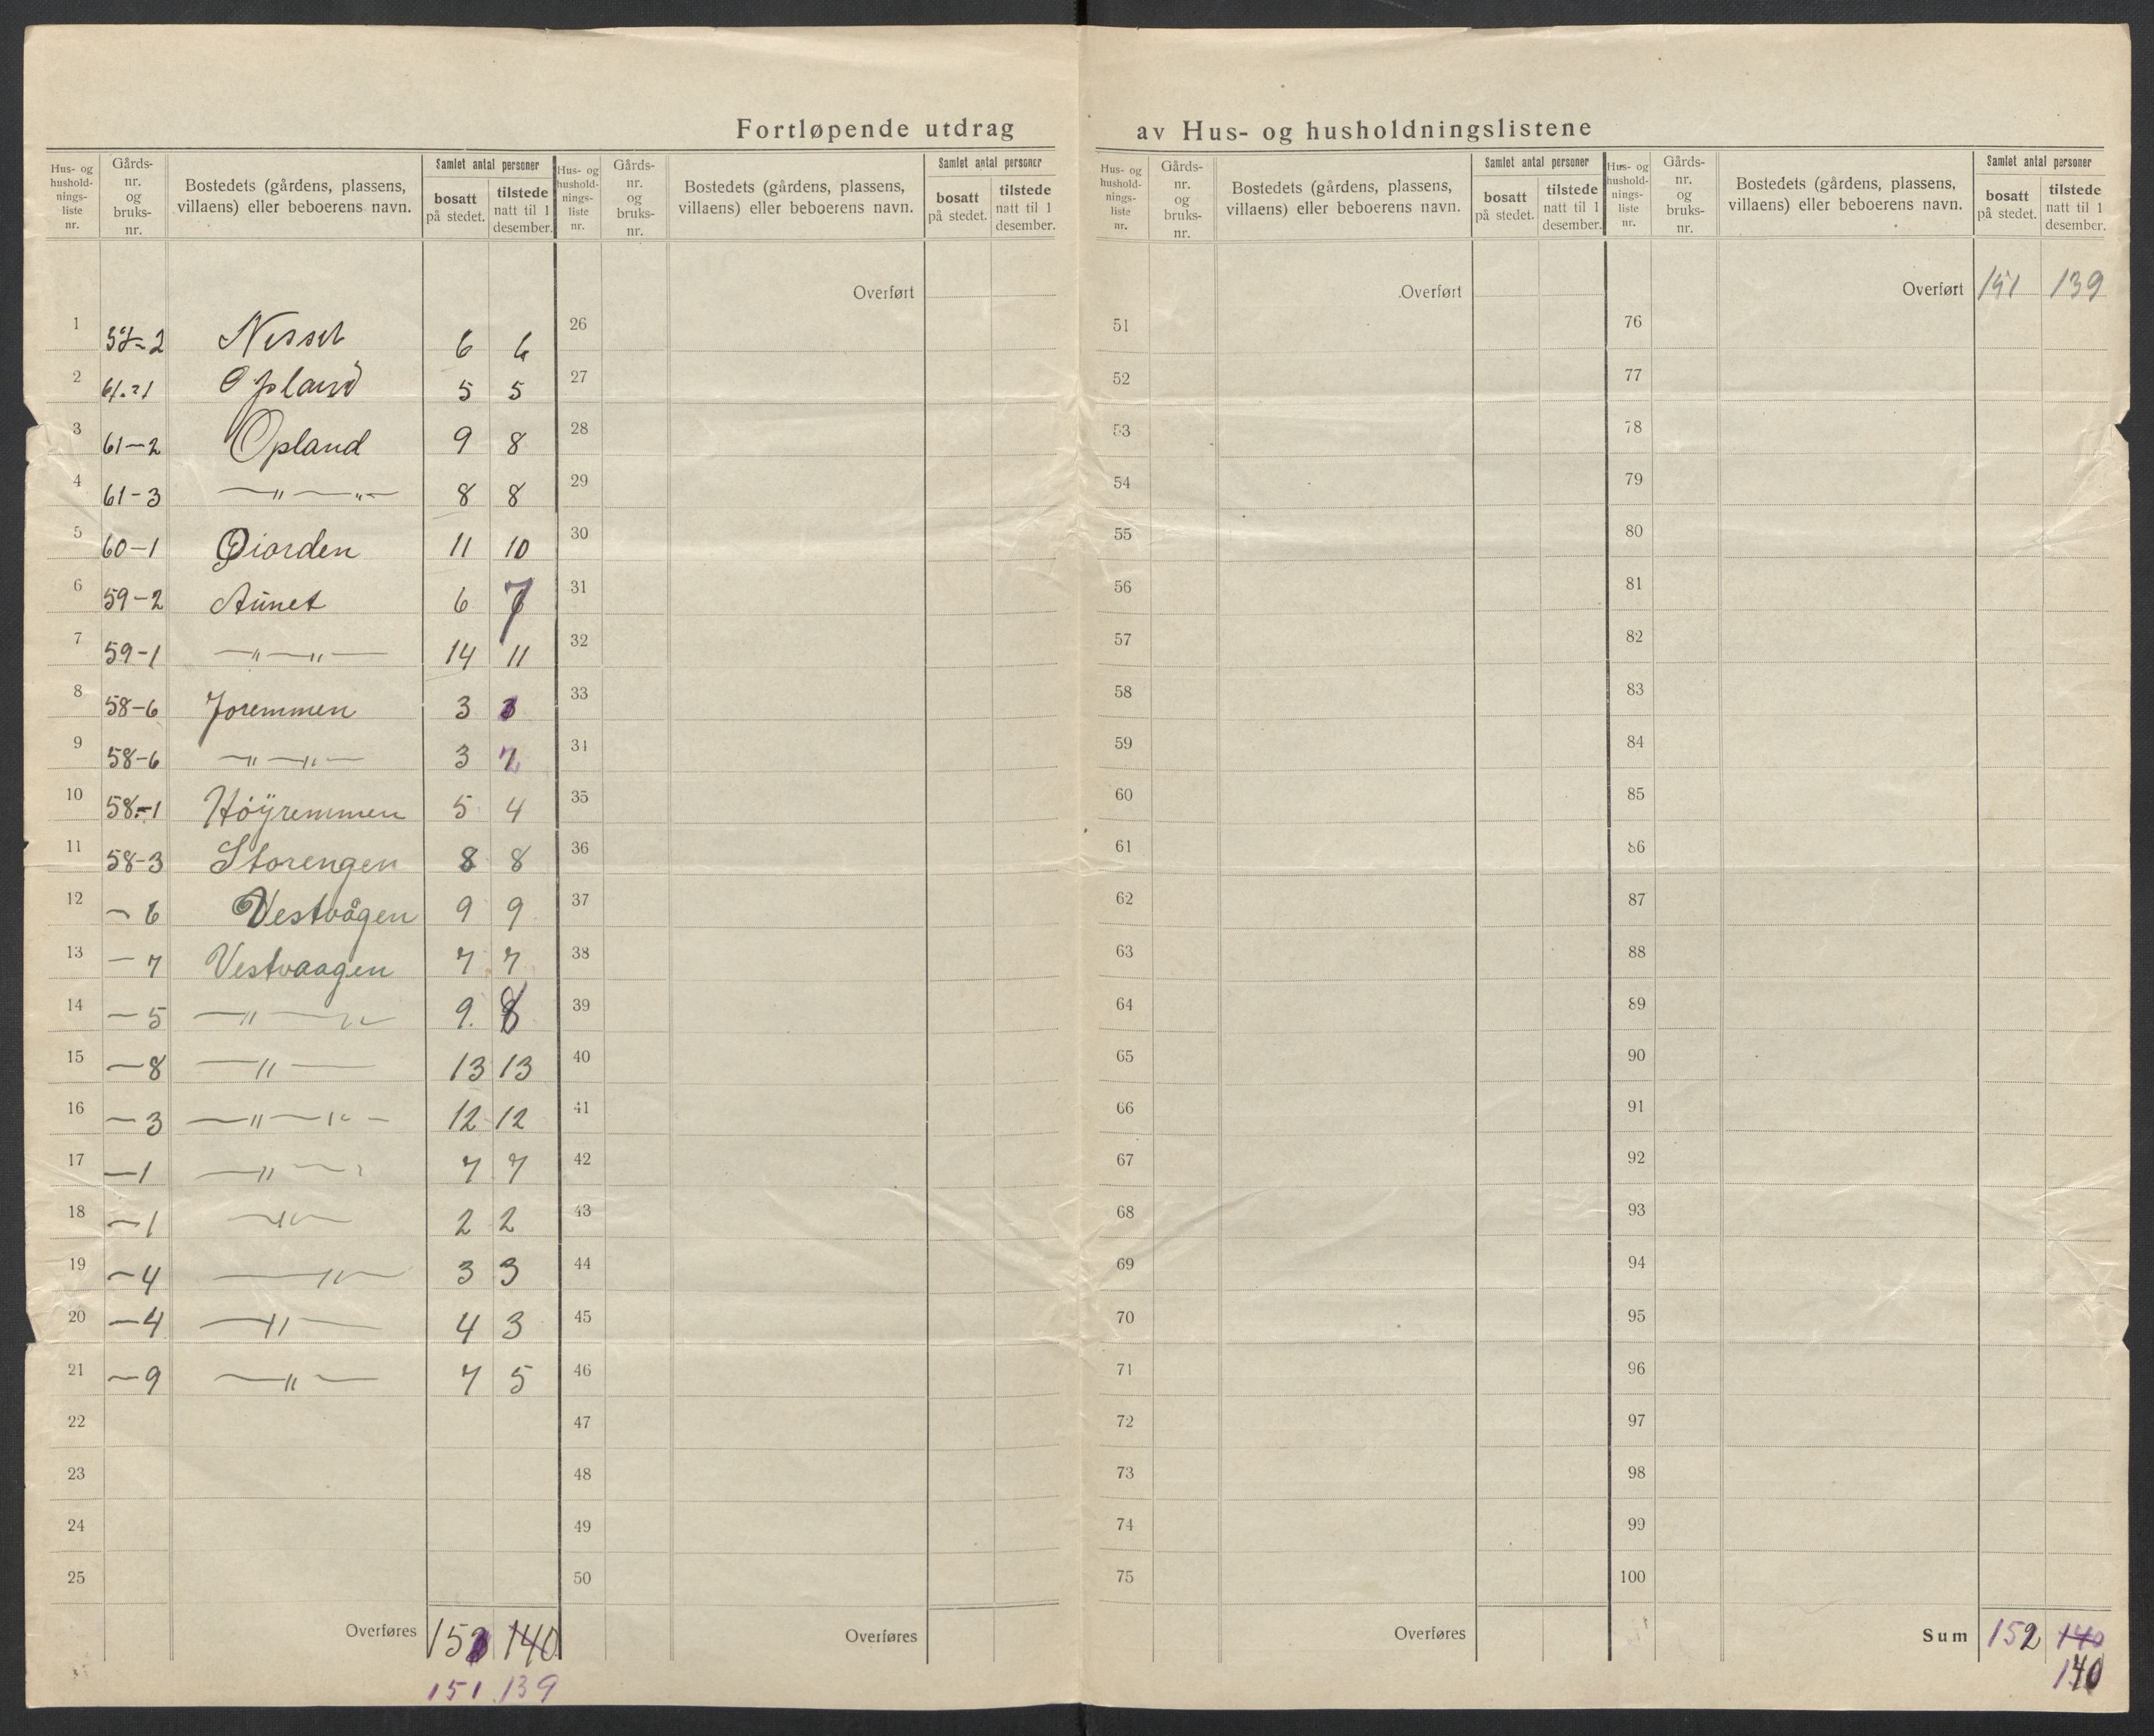 Fortløpende utdrag av Hus- og husholdningslistene
Hus- og husholdningsliste nr. Gårdsnr. og bruksnr. Bostedets (gårdens, plassens, villaens) eller beboerens navn. Samlet antal personer bosatt på stedet. tilstede natt til 1 desember.
1 58-2 Nesset 6 6
2 61-1 Opland 5 5
3 61-2 Opland 9 8
4 61-3 —"— —"— 8 8
5 60-1 Øiorden 11 10
6 59-2 Aunet 6 7
7 59-1 —"—"— 14 11
8 58-6 Joremmen 3 3
9 58-6 —"—"— 3 2
10 58-1 Höyremmen 5 4
11 58-3 Storengen 8 8
12 — 6 Vestvågen 9 9
13 — 7 Vestvaagen 7 7
14 — 5 —"— 9 8
15 — 8 —"— 13 13
16 — 3 —"—"— 12 12
17 — 1 —"— 7 7
18 — 1 —"— 2 2
19 — 4 —"— 3 3
20 — 4 —"— 4 3
21 — 9 —"— 7 5
22
23
24
25
Overføres 140
151 139
Hus- og husholdningsliste nr. Gårdsnr. og bruksnr. Bostedets (gårdens, plassens, villaens) eller beboerens navn. Samlet antal personer bosatt på stedet. tilstede natt til 1 desember.
Overført
26
27
28
29
30
31
32
33
34
35
36
37
38
39
40
41
42
43
44
45
46
47
48
49
50
Overføres
Hus- og husholdningsliste nr. Gårdsnr. og bruksnr. Bostedets (gårdens, plassens, villaens) eller beboerens navn. Samlet antal personer bosatt på stedet. tilstede natt til 1 desember.
Overført
51
52
53
54
55
56
57
58
59
60
61
62
63
64
65
66
67
68
69
70
71
72
73
74
75
Overføres
Hus- og husholdningsliste nr. Gårdsnr. og bruksnr. Bostedets (gårdens, plassens, villaens) eller beboerens navn. Samlet antal personer bosatt på stedet. tilstede natt til 1 desember.
Overført 151 139
76
77
78
79
80
81
82
83
84
85
86
87
88
89
90
91
92
93
94
95
96
97
98
99
100
Sum 152 140
140